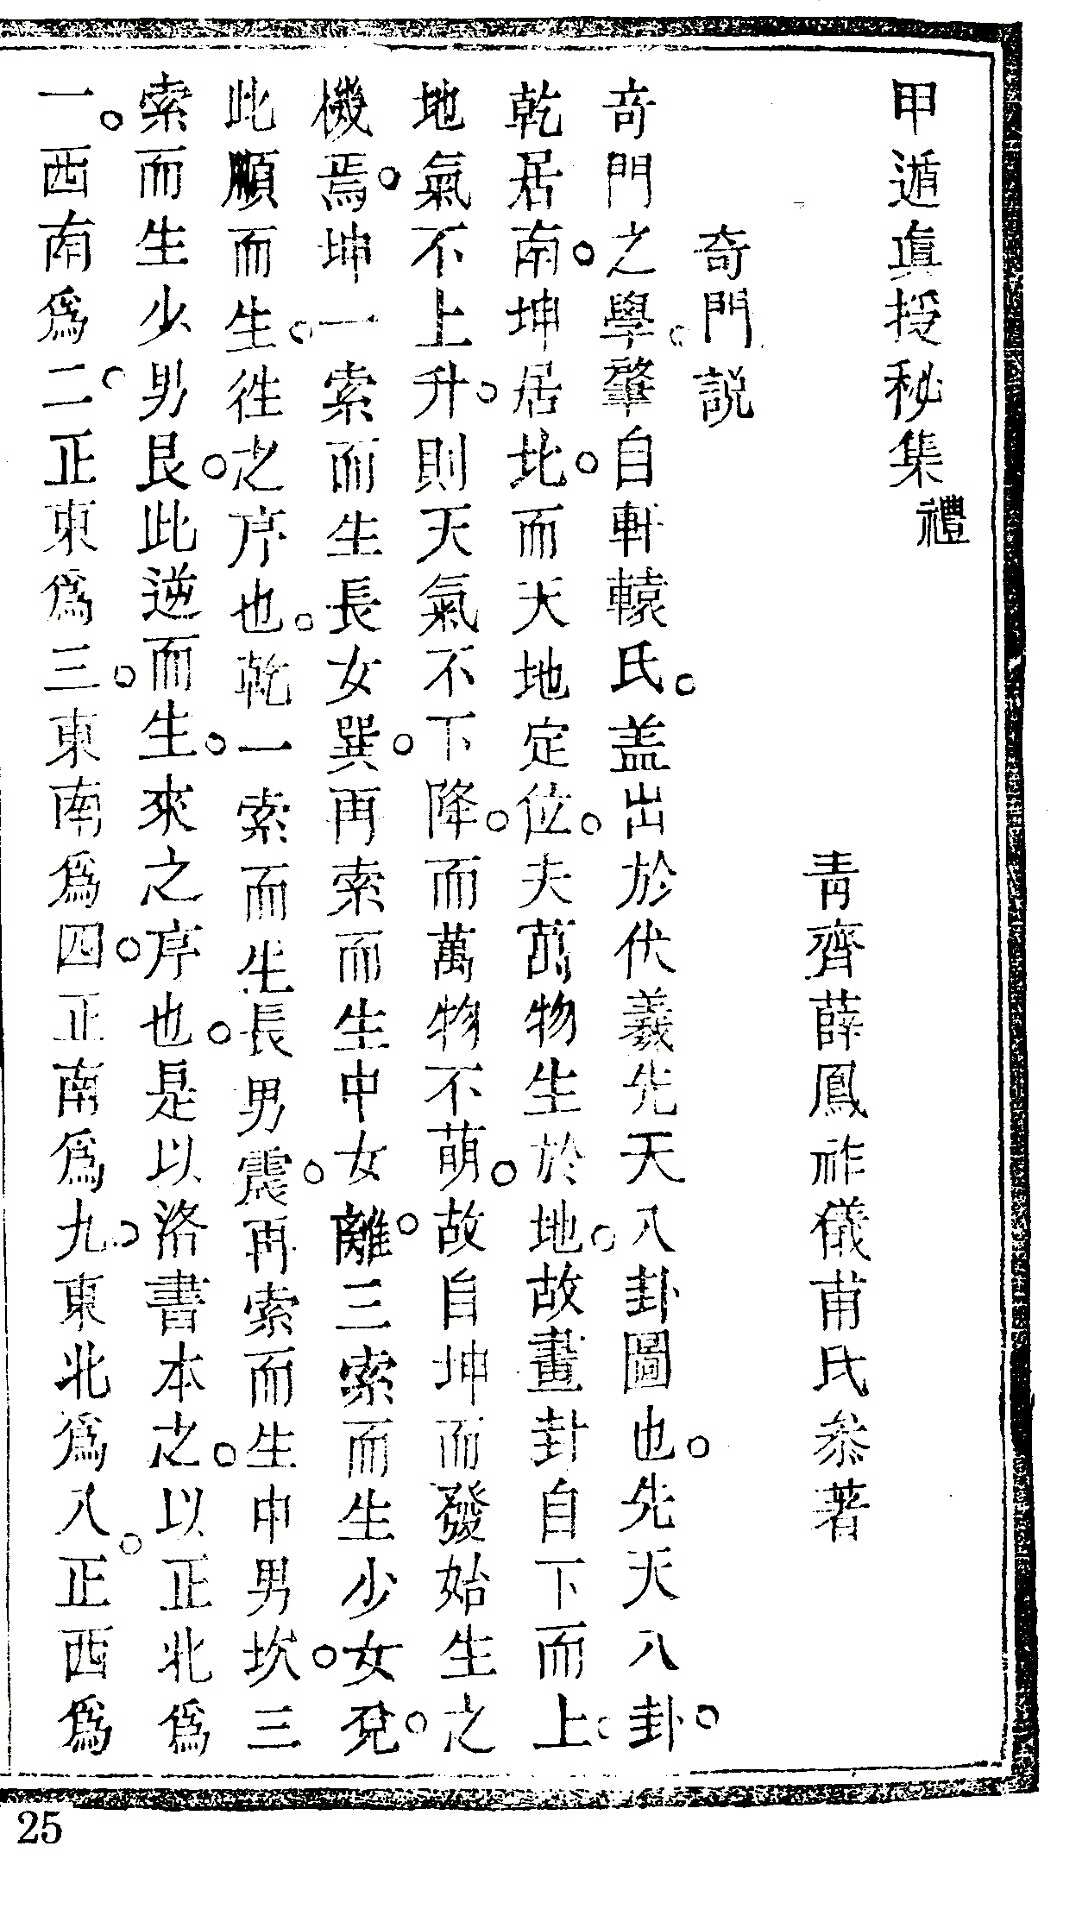 甲遁眞授秘集 禮
青齊薛鳳祚儀甫氏叅著
奇門説
奇門之學。肇自軒轅氏。盖出於伏羲先天八卦圖也。先天八卦。
乾居南。坤居北。而天地定位。夫萬物生於地。故畫卦自下而上。
地氣不上升。則天氣不下降。而萬物不萌。故自坤而發始生之
機焉。坤一索而生長女巽。再索而生中女離。三索而生少女兌。
此順而生。徃之序也。乾一索而生長男震。再索而生中男坎。三
索而生少男艮。此逆而生。來之序也。是以洛書本之。以正北爲
一。西南爲二。正東爲三。東南爲四。正南爲九。東北爲八。正西爲
25